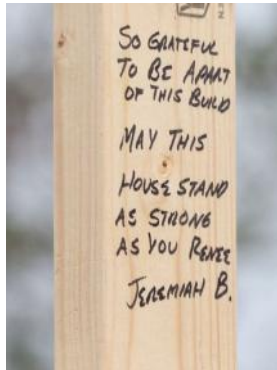 So GRATEFUL
TO BE APART
OF THIS BUILD
MAY THIS
HOUSE STAND
AS STRONG
AS YOU RENEE
JEREMIAH B.